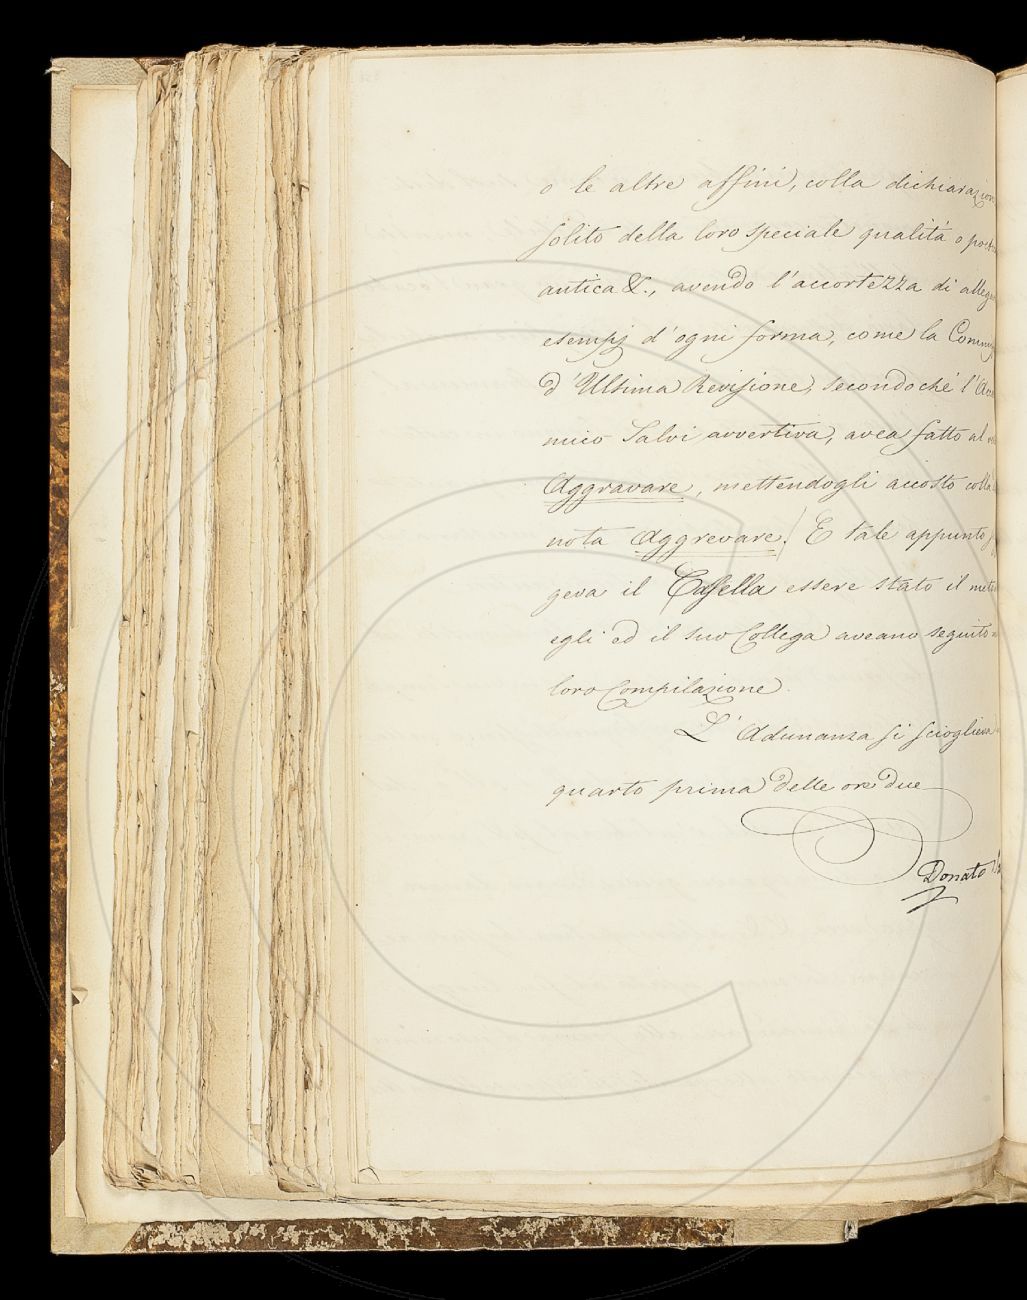 o le altre affini, colla dichiarazione
solito della loro speciale qualità o
antica &., avendo l'accortezza di
esempj d'ogni forma, come la
d'Ultima Revisione, secondoché l'
mico Salvi avvertiva, avea fatto al
Aggravare, mettendogli accosto colla
nota Aggrevare. E tale appunto
geva il Casella essere stato il
egli ed il suo Collega aveano seguito
loro Compilazione.
L'Adunanza si scioglieva
quarto prima delle ore due
Donato